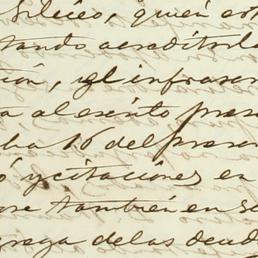 Silceo, quien es
tando acreditada
ión, y el infrascr
a al escrito prese
ha 16 del presen
ó y citaciones en
que tambien en se
grega de las deud